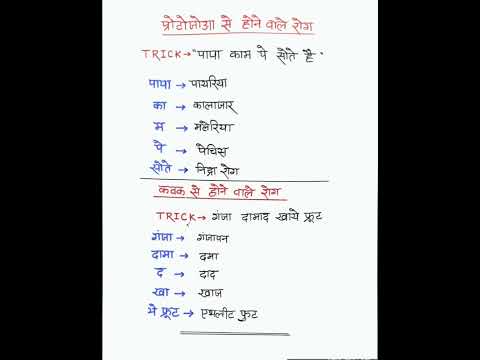 प्रोटोजोआ से होने वाले रोग
TRICK→"पापा काम पे सोते है"
पापा → पायरिया
का → कालाजार
म → मलेरिया
पे → पेचिस
सोते → निद्रा रोग
कवक से होने वाले रोग
TRICK→ गंजा दामाद खाये फ्रूट
गंजा → गंजापन
दामा → दमा
द → दाद
खा → खाज
ये फ्रूट → एथलीट फुट